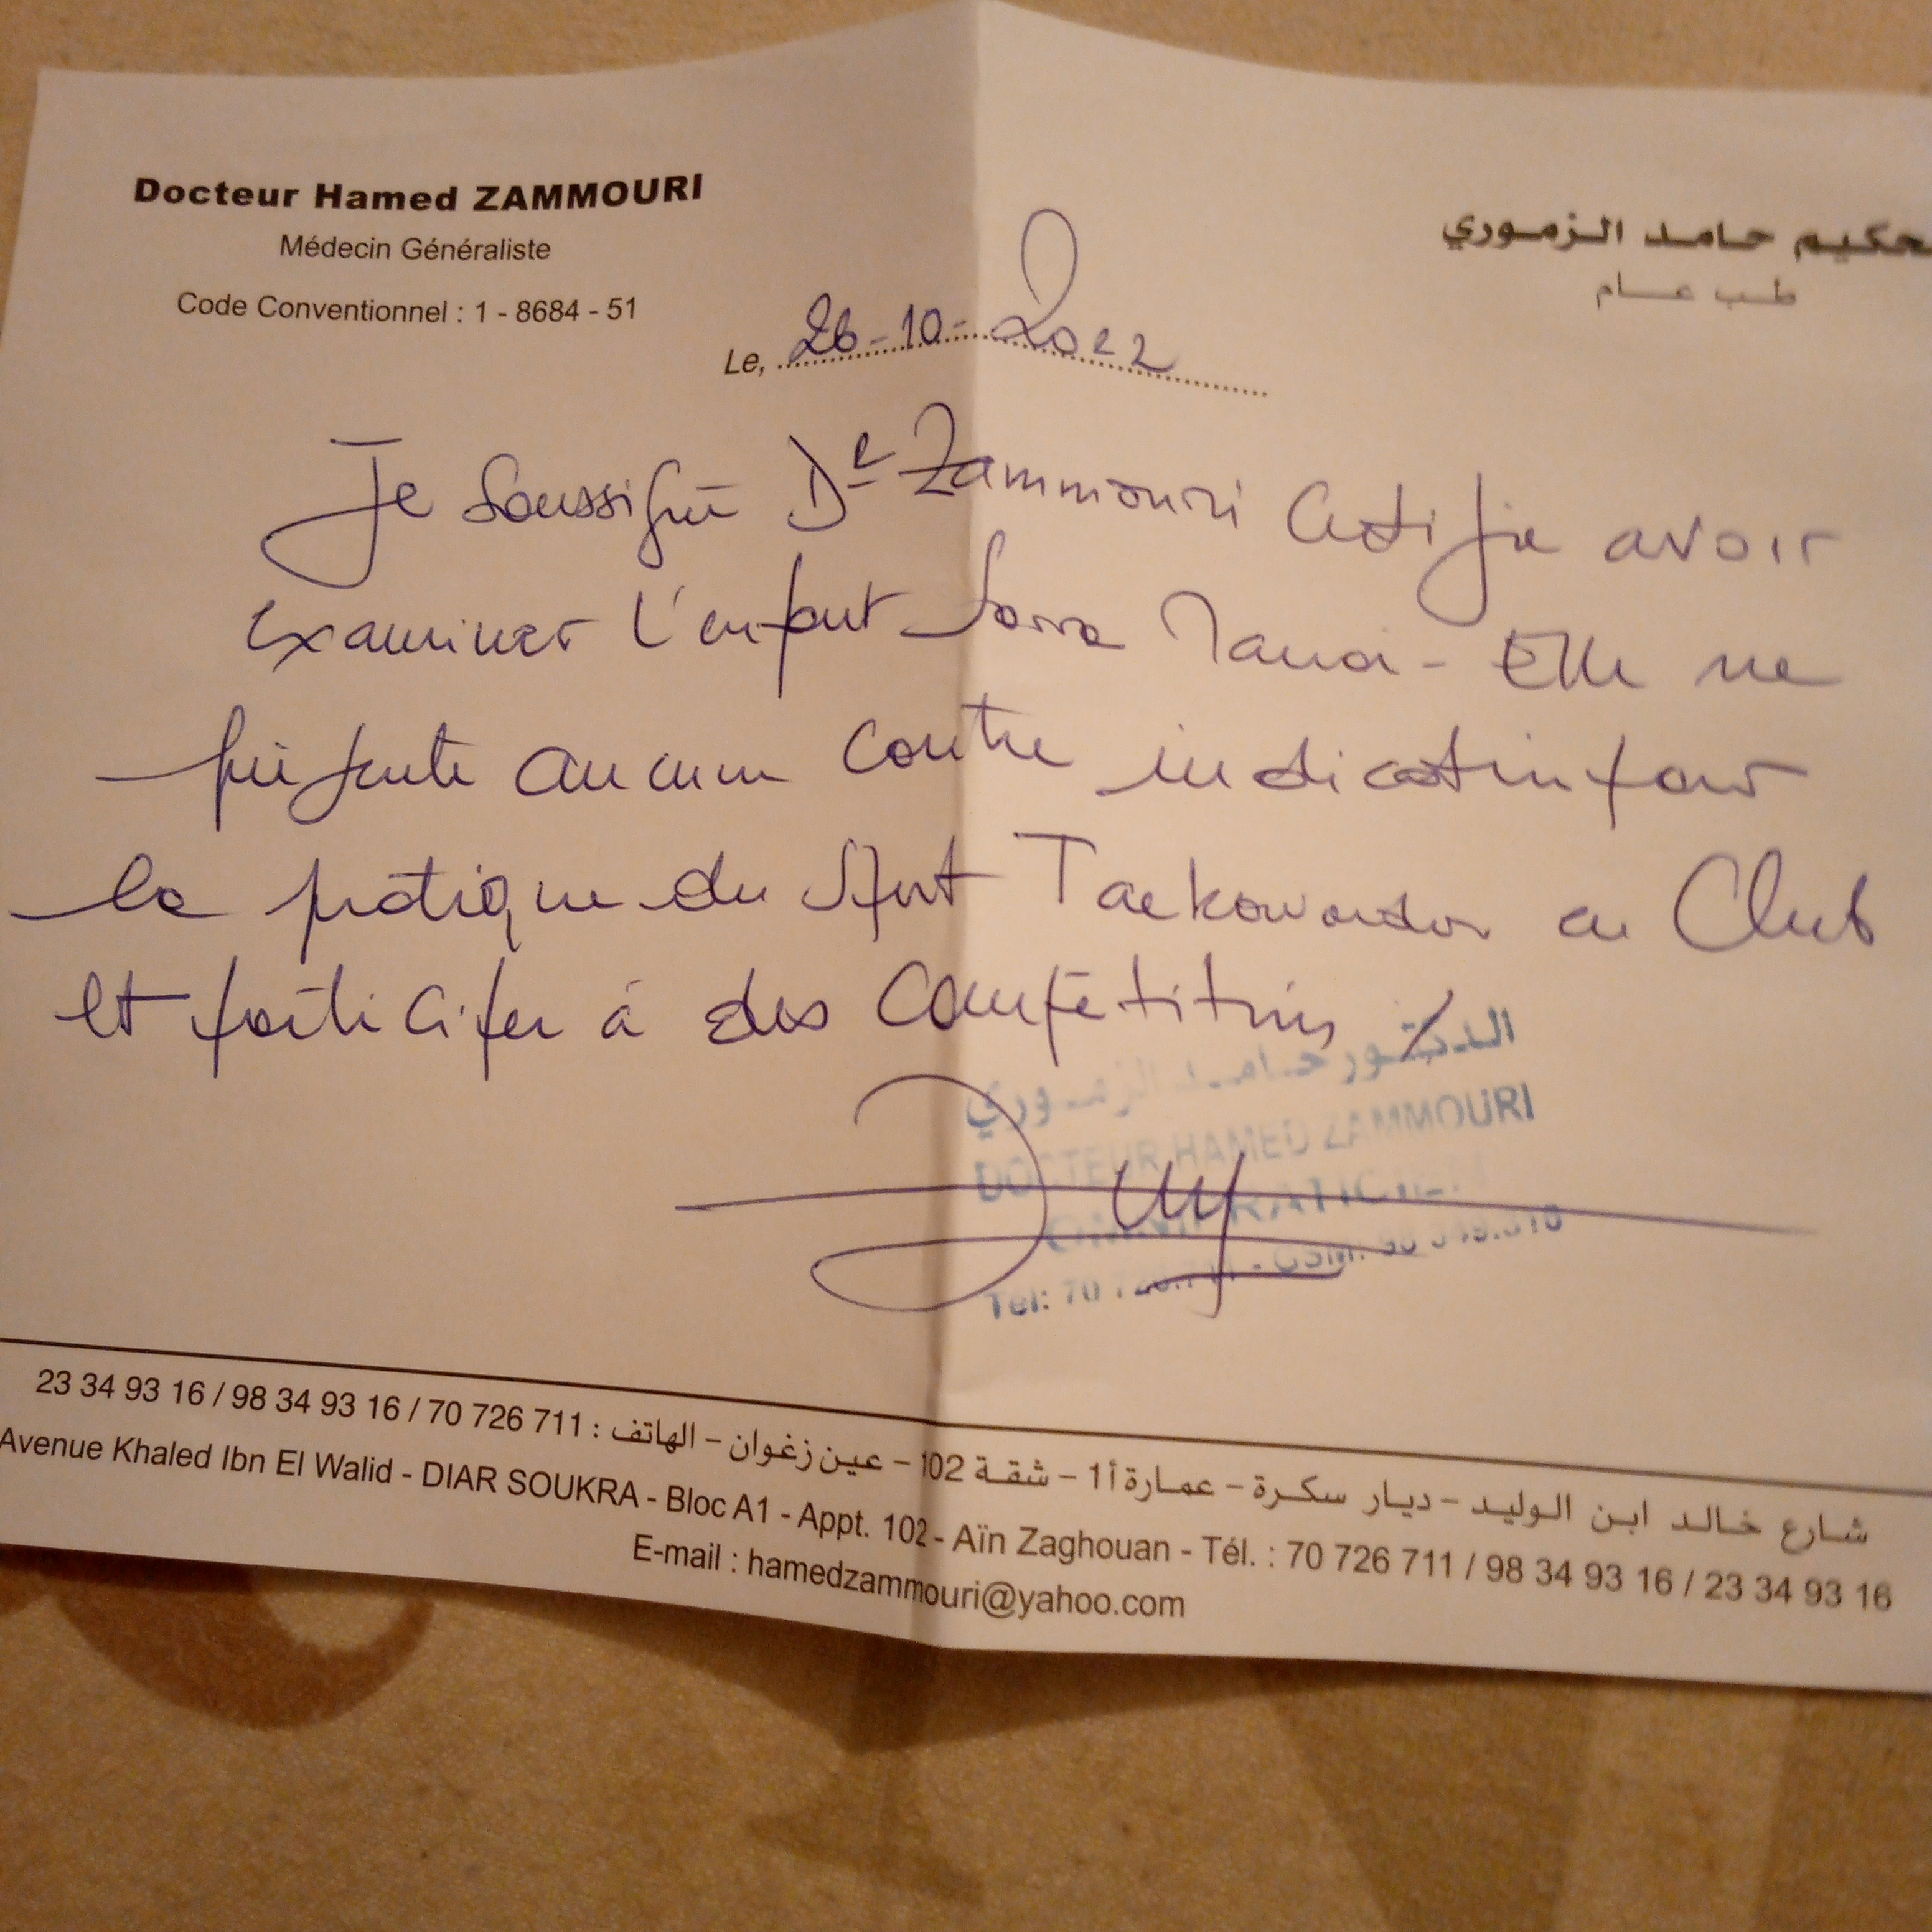 Docteur Hamed ZAMMOURI
Médecin Généraliste
Code Conventionnel : 1 - 8684 - 51
حكيم حامد الزموري
طب عام
Le, 26-10-2022
Je soussigné Dr Zammouri Certifie avoir
examiner l'enfant Sarra - Elle ne
présente aucun contre indication pour
la pratique du sport Taekowondo au Club
et participer à des Compétitions
الدكتور حامد الزموري
DOCTEUR HAMED ZAMMOURI
OMNIPRATICIEN
Tel: 70 726.711 - GSM: 98 349.316
شارع خالد ابن الوليد - ديار سكرة - عمارة أ1 - شقة 102 - عين زغوان - الهاتف : 70 726 711 / 98 34 93 16 / 23 34 93 16
Avenue Khaled Ibn El Walid - DIAR SOUKRA - Bloc A1 - Appt. 102 - Aïn Zaghouan - Tél. : 70 726 711 / 98 34 93 16 / 23 34 93 16
E-mail : hamedzammouri@yahoo.com